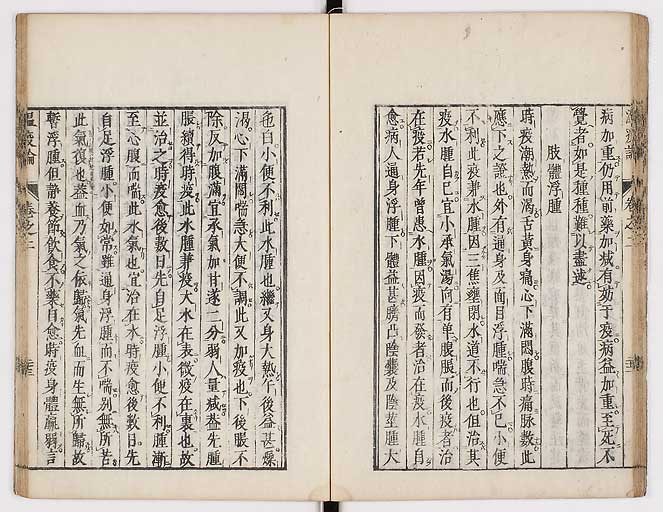 病加重仍用前藥加減有妨于疫病益加重至死不
覺者如是種種難以盡述
肢體浮腫
時疫潮熱而渴舌黃身痛心下滿悶腹時痛脉數此
應下之證也外有通身及面目浮腫喘急不已小便
不利此疫兼水腫因三焦壅閉水道不行也但治其
疫水腫自已宜小承氣湯向有单腹脹而後疫者治
在疫若先年曾患水腫因疫而發者治在疫水腫自
愈病人通身浮腫下體益甚臍凸陰囊及陰莖腫大
色白小便不利此水腫也繼又身大熱午後益甚燥
渴心下滿悶喘急大便不調此又加疫也下後脹不
除反加腹滿宜承氣加甘遂二分弱人量減蓋先腫
脹續得時疫此水腫兼疫大水在表微疫在裏也故
並治之時疫愈後數日先自足浮腫小便不利腫漸
至心腹而喘此水氣也宜治在水時疫愈後數日先
自足浮腫小便如常雖通身浮腫而不喘别無所苦
此氣復也蓋血乃氣之依歸氣先血而生無所歸故
暫浮腫但静養節飲食不藥自愈時疫身體羸弱言
温疫論
卷之二